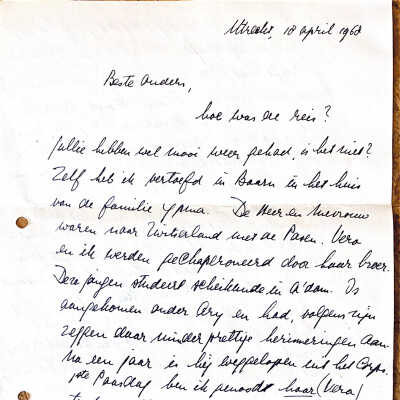 Utrecht, 18 april 1968
Beste ouders,
hoe was de reis?
Jullie hebben wel mooi weer gehad, is het niet?
Zelf heb ik vertoefd in Baarn in het huis
van de familie Ypma. De Heer en Mevrouw
waren naar Zwitserland met de Pasen. Vera
en ik werden gechaperoneerd door haar broer.
Deze jongen studeert scheikunde in A'dam. Is
aangekomen onder Ary en had, volgens zijn
zeggen daar minder prettige herinneringen aan.
Na een jaar is hij weggelopen uit het Corps.
1ste Paasdag ben ik genoodt haar (Vera)